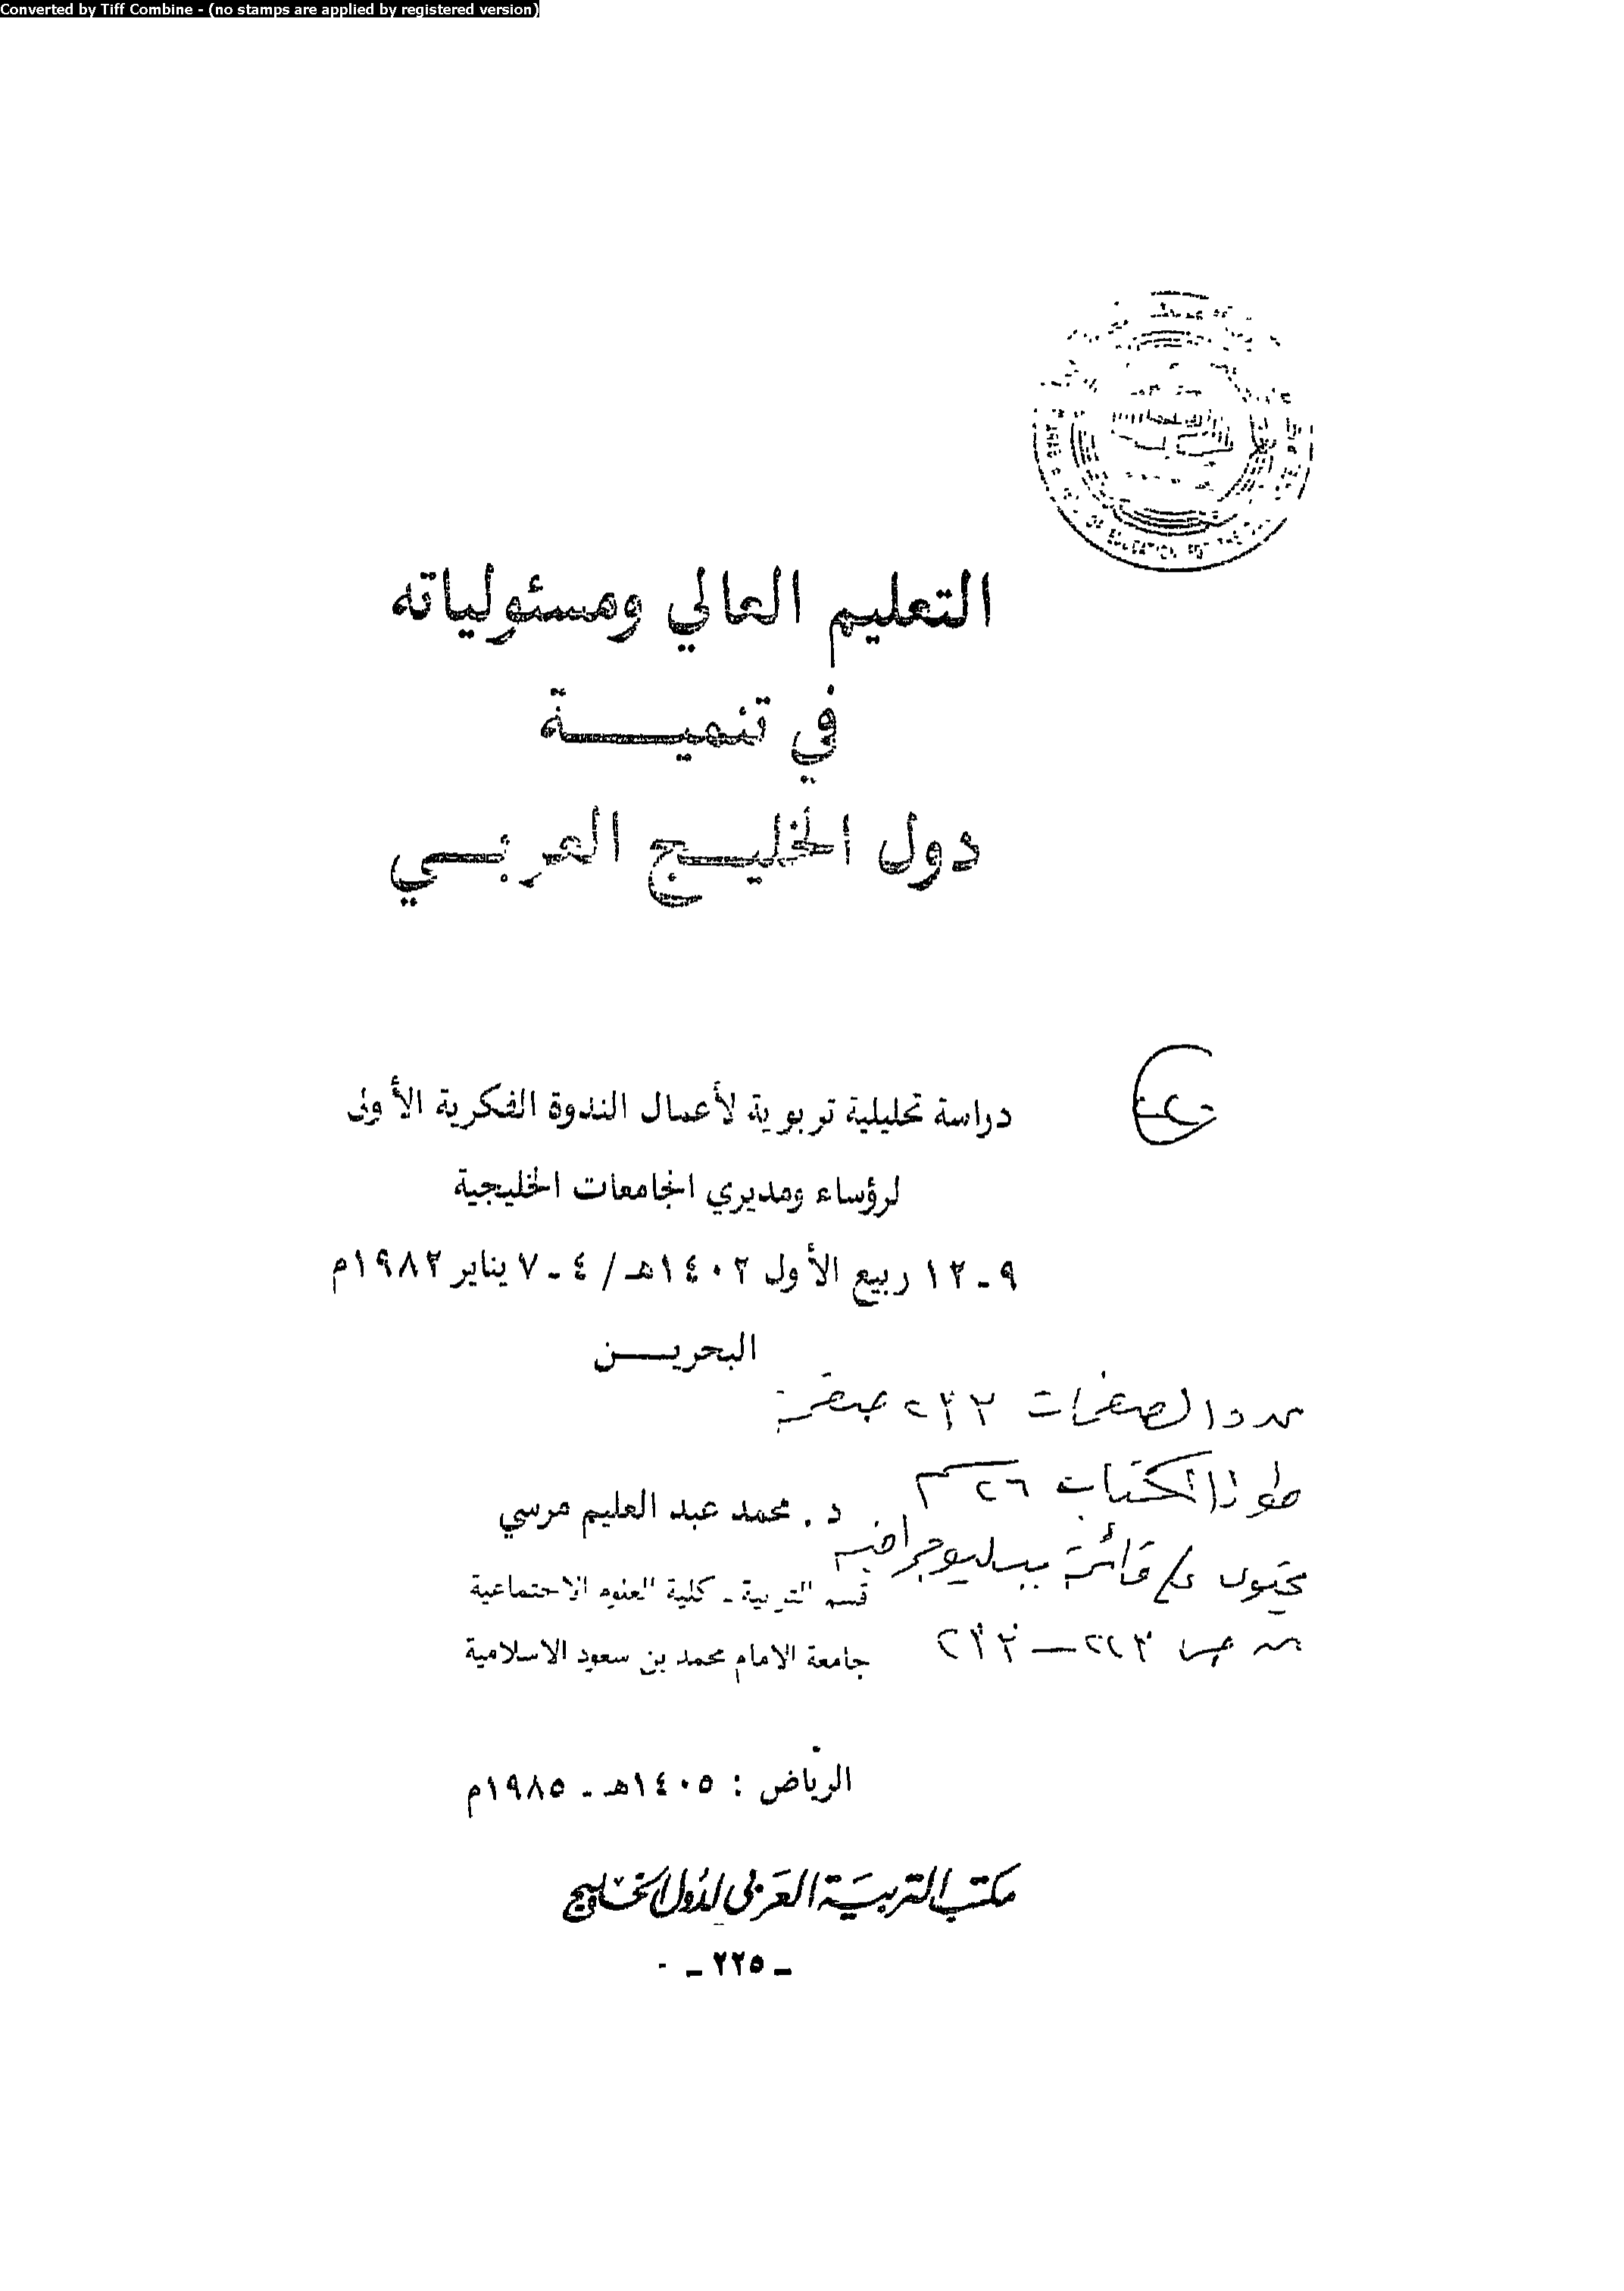 Converted by Tiff Combine - (no stamps are applied by registered version)
OF EDUCATION FOR THE
التعليم العالي ومسئولياته
في تنميـــــة
دول الخليـج العربـي
دراسة تحليلية تربوية لأعمال الندوة الفكرية الأولى
لرؤساء ومديري الجامعات الخليجية
٩ ـ ١٢ ربيع الأول ١٤٠٢هـ / ٤ ـ ٧ يناير ١٩٨٢م
البحريــــن
عدد الصفحات ٢٣٢ صفحة
طول الكتاب ٢٦ سم
د . محمد عبد العليم مرسي
يحتوى على قائمة ببليوجرافية
قسم التربية ـ كلية العلوم الاجتماعية
من ص ٢٢٣ — ٢٣٢
جامعة الامام محمد بن سعود الاسلامية
الرياض : ١٤٠٥هـ ـ ١٩٨٥م
مكتب التربية العربي لدول الخليج
ـ ٢٢٥ ـ